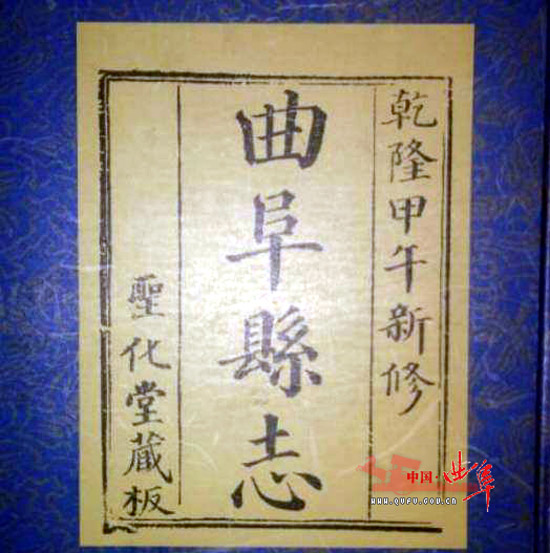 乾隆甲午新修
曲阜縣志
聖化堂藏板
中国·曲阜
www.qufu.gov.cn